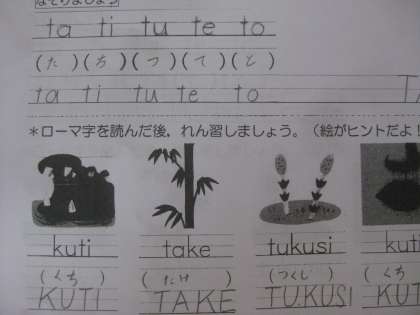 なぞりましょう
ta ti tu te to
(た)(ち)(つ)(て)(と)
ta ti tu te to
*ローマ字を読んだ後、れん習しましょう。(絵がヒントだよ!
kuti take tukusi kuti
(くち) (たけ) (つくし) (くち
KUTI TAKE TUKUSI KUT